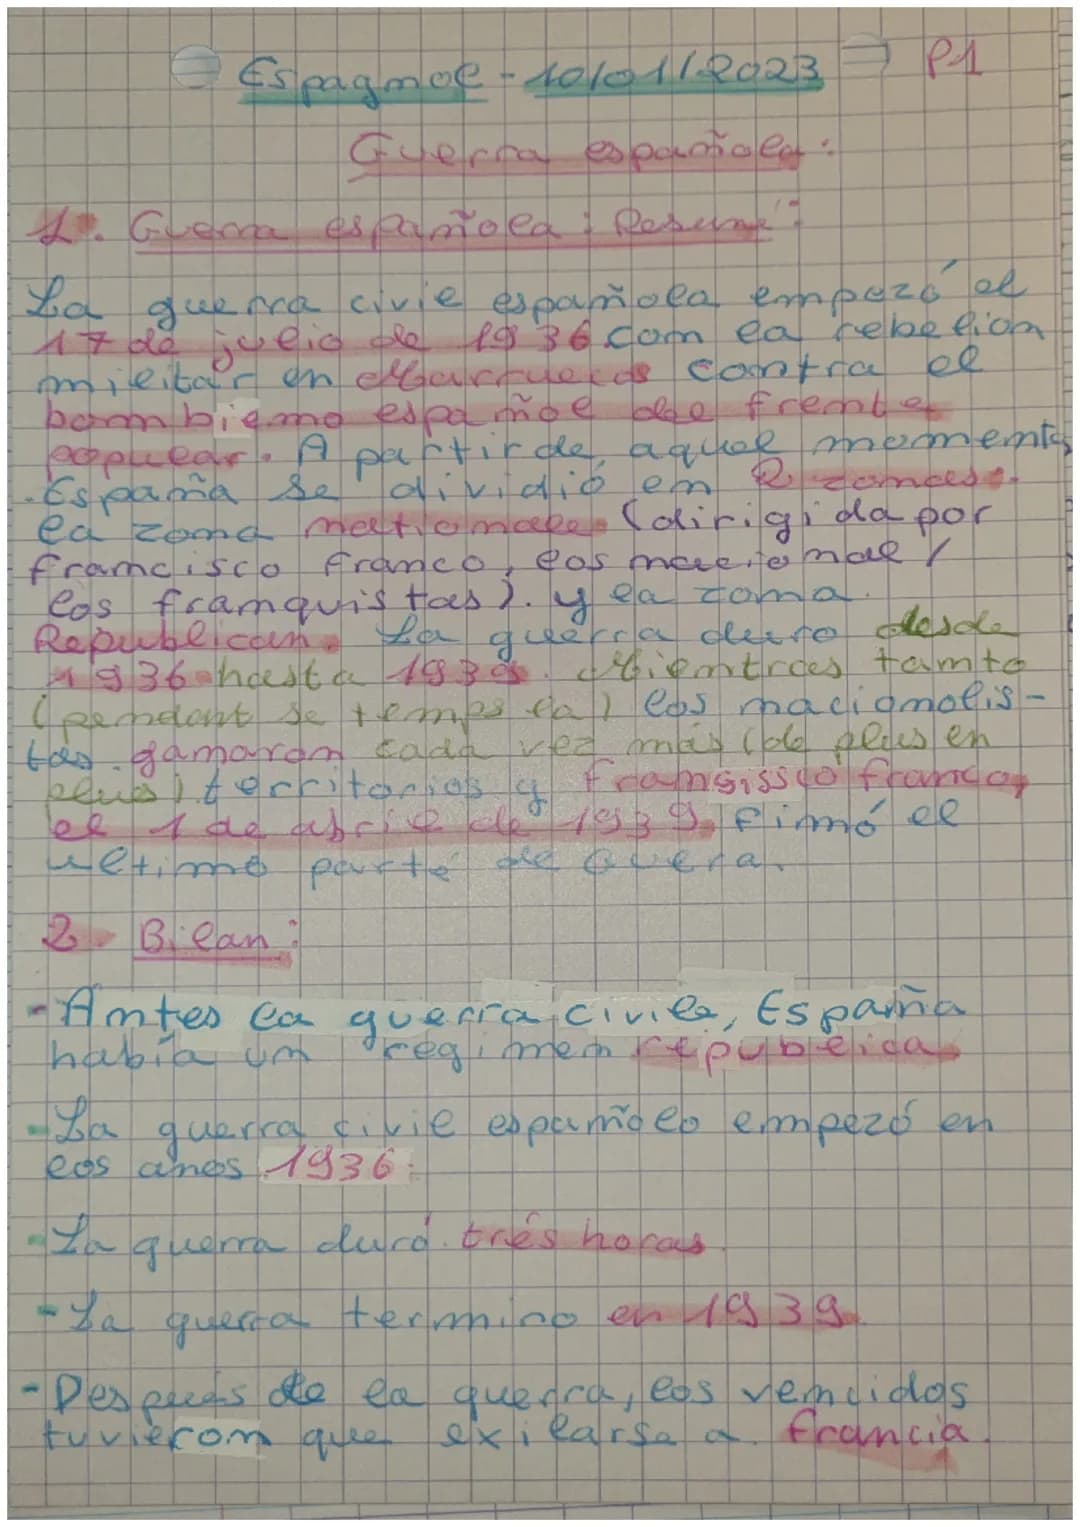 Espagnol - 10/01/2023 P1
Guerra española :
1. Guerra española : Resumé :
La guerra civil española empezó el
17 de julio de 1936 com la rebelion
militar en Marruecos contra el
bombierno español de frente
popular. A partir de aquel momento,
España se dividió en 2 zonas.
la zona nationale (dirigida por
francisco franco, los nacional /
los franquistas). y la zona
Republican. La guerra duro desde
1936 hasta 1939. Mientras tamto
(pendant se temps la) los nacionalis-
tas ganaron cada vez más (de plus en
plus) territorios y fransissco franco,
el 1 de abril de 1939, Firmó el
ultimo parte de Guera.
2. Bilan :
- Antes la guerra civile, España
había um régimen republica.
- La guerra civil españolo empezó en
los anos 1936.
- La guerra duró trés horas.
- La guerra termino en 1939.
- Después de la guerra, los vencidos
tuvieron que exilarse a francia.